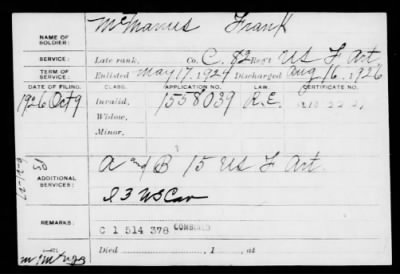 NAME OF SOLDIER: McManus Frank
SERVICE: Late rank, Co. C. 82 Reg't US F Art
TERM OF SERVICE: Enlisted May 17, 1924 Discharged Aug 16, 1926
DATE OF FILING. CLASS. APPLICATION NO. LAW. CERTIFICATE NO.
1926 Oct 9 Invalid, 1558039 R.E.
Widow,
Minor,
ADDITIONAL SERVICES: A and B 15 US F Art.
23 US Cav
REMARKS: C 1 514 378 COMBINED
Died , 1 , at